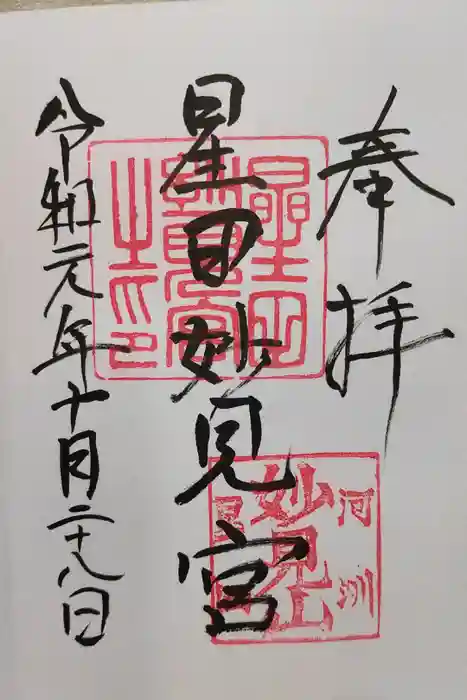 奉拝
星田妙見宮
令和元年十月二十八日
星田妙見宮之印
河州
妙見山
星田